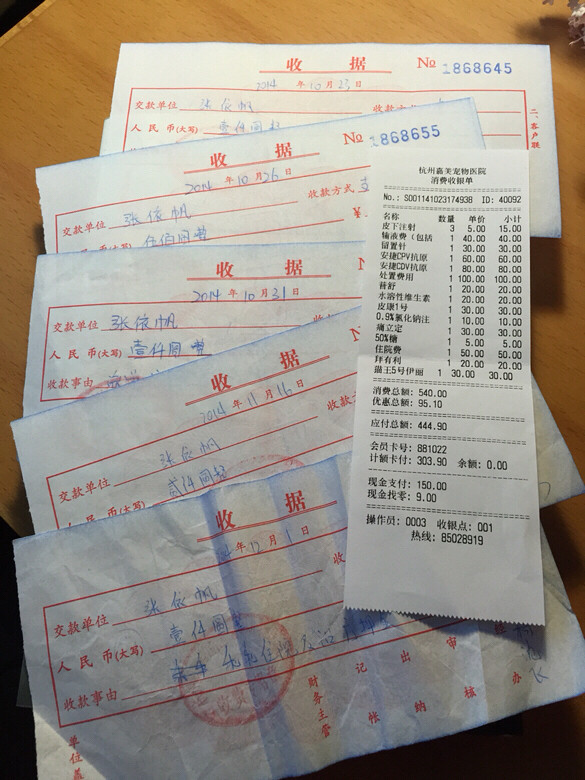 收 据 № 1868645
2014 年 10 月 23 日
交款单位 张依帆
人民币(大写) 壹仟圆整
二、客户联
收 据 № 1868655
2014 年 10 月 26 日
收款方式
交款单位 张依帆
人民币(大写) 伍佰圆整
收 据
2014 年 10 月 31 日
交款单位 张依帆
人民币(大写) 壹仟圆整
收款事由
2014 年 11 月 16 日
交款单位 张依帆
人民币(大写) 贰仟圆整
收 据
年 12 月 1 日
交款单位 张依帆
人民币(大写) 壹仟圆整
收款事由
单位盖
财务主管 记帐 出纳 审核 经办
杭州鑫美宠物医院
消费收银单
No.: SO01141023174938 ID: 40092
名称 数量 单价 小计
皮下注射 3 5.00 15.00
输液费（包括 1 40.00 40.00
留置针 1 30.00 30.00
安捷CPV抗原 1 60.00 60.00
安捷CDV抗原 1 80.00 80.00
处置费用 1 100.00 100.00
普舒 1 20.00 20.00
水溶性维生素 1 20.00 20.00
皮康1号 1 30.00 30.00
0.9%氯化钠注 1 10.00 10.00
痛立定 1 30.00 30.00
50%糖 1 5.00 5.00
住院费 1 50.00 50.00
拜有利 1 20.00 20.00
猫王5号伊丽 1 30.00 30.00
消费总额: 540.00
优惠总额: 95.10
应付总额: 444.90
会员卡号: 881022
计额卡付: 303.90 余额: 0.00
现金支付: 150.00
现金找零: 9.00
操作员: 0003 收银点: 001
热线: 85028919